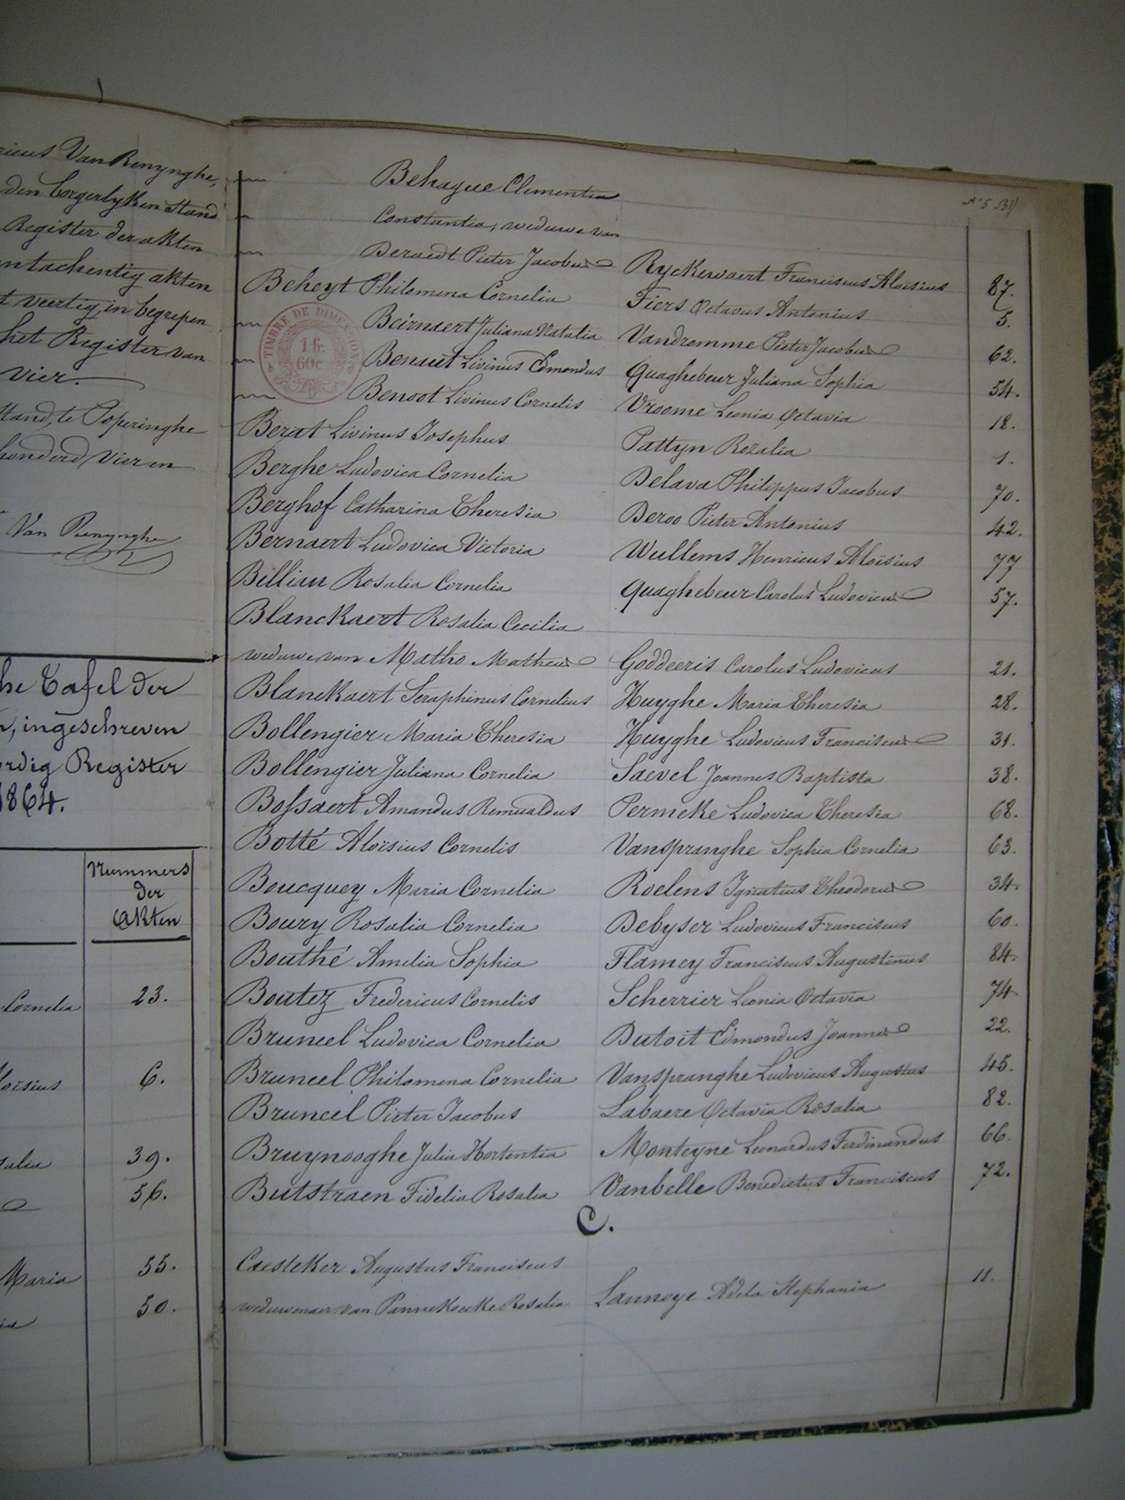 ricus Van Renynghe,
den borgerlyken Stand
Register der akten
entachentig akten
t veertig, in begrepen
het Register van
vier.
Stand, te Poperinghe
honderd vier en
Van Renynghe
he Tafel der
n, ingeschreven
ordig Register
1864.
Nummers
der
akten
Cornelia 23.
loïsius 6.
salia 39.
56.
Maria 55.
50.
N° 5
TIMBRE DE DIMENSION
1 f.
60 c.
Behague Clementia
Constantia, weduwe van
Deraedt Pieter Jacobus Ryckewaert Franciscus Aloïsius 87.
Beheyt Philomena Cornelia Fiers Octavus Antonius 5.
Beirnaert Juliana Natalia Vandromme Pieter Jacobus 62.
Benaut Livinus Edmondus Quaghebeur Juliana Sophia 54.
Benoot Livinus Cornelis Vroome Leonia Octavia 18.
Berat Livinus Josephus Pattyn Rozalia 1.
Berghe Ludovica Cornelia Delava Philippus Jacobus 70.
Berghof Catharina Theresia Deroo Pieter Antonius 42.
Bernaert Ludovica Victoria Wullems Henricus Aloïsius 77
Billiau Rosalia Cornelia Quaghebeur Carolus Ludovicus 57.
Blanckaert Rosalia Cecilia
weduwe van Matho Matheus Goddeeris Carolus Ludovicus 21.
Blanckaert Seraphinus Cornelius Huyghe Maria Theresia 28.
Bollengier Maria Theresia Huyghe Ludovicus Franciscus 31.
Bollengier Juliana Cornelia Saevel Joannes Baptista 38.
Bossaert Amandus Remualdus Permeke Ludovica Theresia 68.
Botté Aloïsius Cornelis Vanspranghe Sophia Cornelia 63.
Boucquey Maria Cornelia Roelens Ignatius Theodorus 34.
Boury Rosalia Cornelia Debyser Ludovicus Franciscus 60.
Bouthé Amelia Sophia Flamey Franciscus Augustinus 84.
Boutez Fredericus Cornelis Scherrier Leonia Octavia 74
Bruneel Ludovica Cornelia Dutoit Edmondus Joannes 22.
Bruneel Philomena Cornelia Vanspranghe Ludovicus Augustus 45.
Bruneel Pieter Jacobus Labaere Octavia Rosalia 82.
Bruynooghe Julia Hortentia Monteyne Leonardus Ferdinandus 66.
Butstraen Fidelia Rosalia Vanbelle Benedictus Franciscus 72.
C.
Caesteker Augustus Franciscus
weduwenaer van Pannekoecke Rosalia Lannoye Adela Stephania 11.